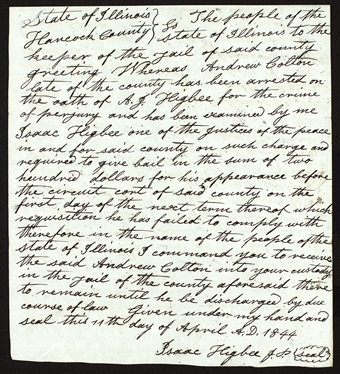 State of Illinois } The people of the
Hancock County } Ss State of Illinois to the
keeper of the jail of said county
greeting Whereas Andrew Colton
late of the county has been arrested on
the oath of A. J. Higbee for the crime
of perjury and has been examined by me
Isaac Higbee one of the Justices of the peace
in and for said county on such charge and
required to give bail in the sum of two
hundred dollars for his appearance before
the circuit cort of said county on the
first day of the next term thereof which
requisition he has failed to comply with
therefore in the name of the people of the
state of Illinois I command you to receive
the said Andrew Colton into your custody
in the jail of the county aforesaid there
to remain until he be discharged by due
course of law Given under my hand and
seal this 11th day of April A.D. 1844
Isaac Higbee J.P. (seal)